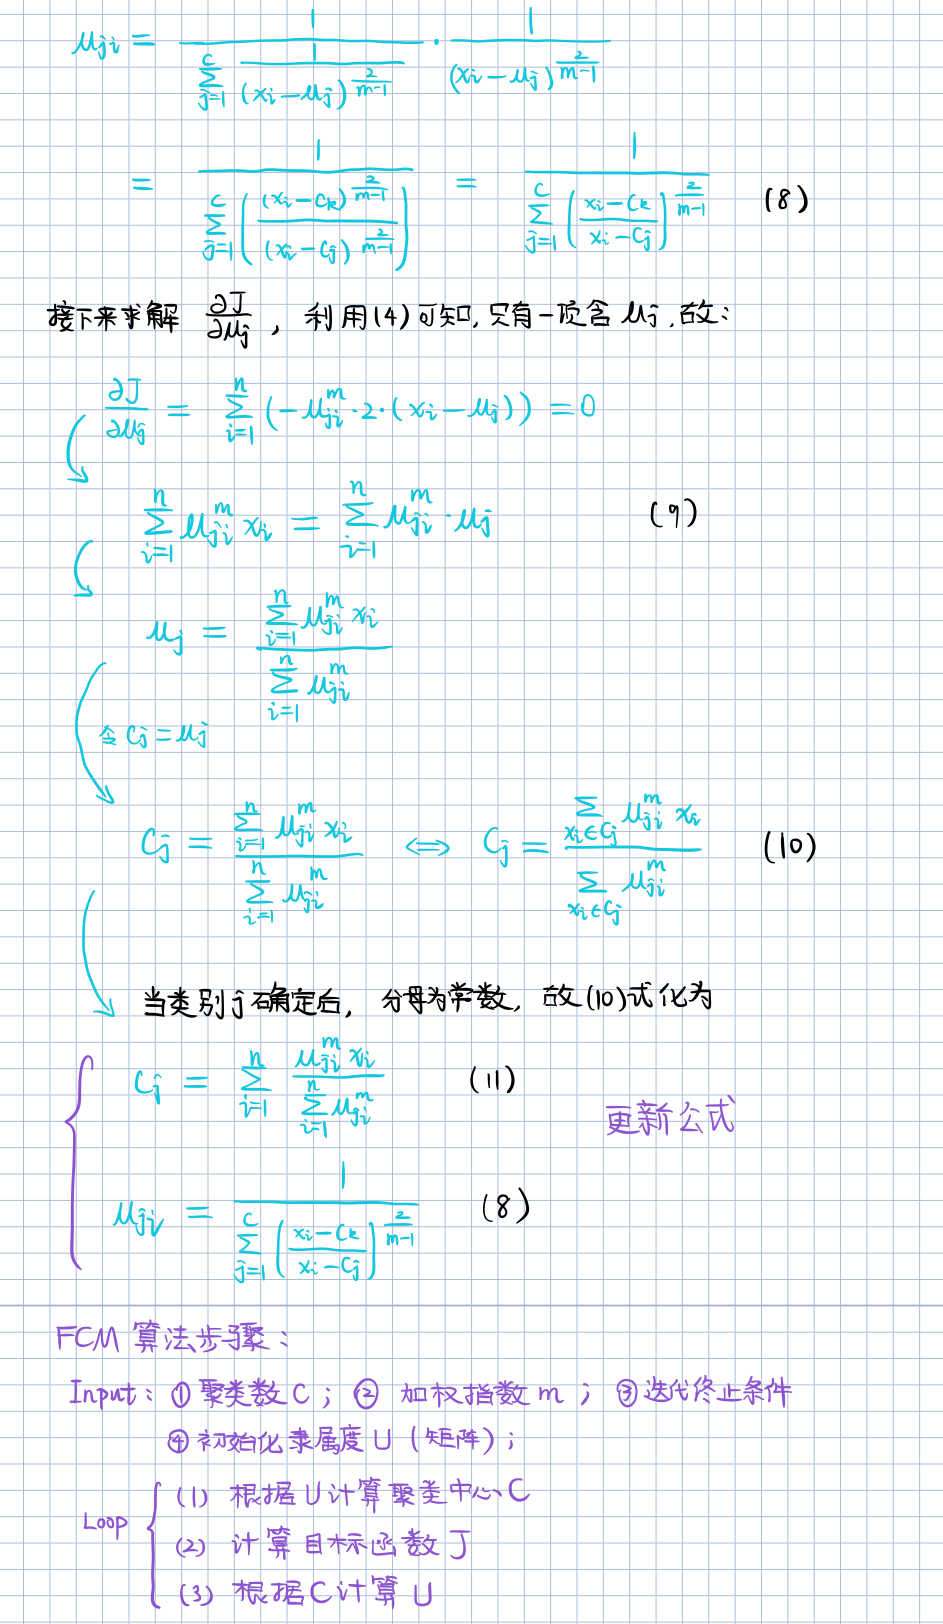 μ_{ji} = \frac{1}{\sum_{j=1}^{C} \frac{1}{(x_i-μ_j)^{\frac{2}{m-1}}}} · \frac{1}{(x_i-μ_j)^{\frac{2}{m-1}}}
= \frac{1}{\sum_{j=1}^{C} \left(\frac{(x_i-C_k)^{\frac{2}{m-1}}}{(x_i-C_j)^{\frac{2}{m-1}}}\right)} = \frac{1}{\sum_{j=1}^{C} \left(\frac{x_i-C_k}{x_i-C_j}\right)^{\frac{2}{m-1}}} (8)
接下来求解 \frac{∂J}{∂μ_j}, 利用(4)可知,只有一项含μ_j,故:
\frac{∂J}{∂μ_j} = \sum_{i=1}^{n} (-μ_{ji}^m·2·(x_i-μ_j)) = 0
\sum_{i=1}^{n} μ_{ji}^m x_i = \sum_{i=1}^{n} μ_{ji}^m·μ_j (9)
μ_j = \frac{\sum_{i=1}^{n} μ_{ji}^m x_i}{\sum_{i=1}^{n} μ_{ji}^m}
令 C_j = μ_j
C_j = \frac{\sum_{i=1}^{n} μ_{ji}^m x_i}{\sum_{i=1}^{n} μ_{ji}^m} ⟺ C_j = \frac{\sum_{x_i∈C_j} μ_{ji}^m x_i}{\sum_{x_i∈C_j} μ_{ji}^m} (10)
当类别j确定后, 分母为常数, 故(10)式化为
C_j = \sum_{i=1}^{n} \frac{μ_{ji}^m x_i}{\sum_{i=1}^{n} μ_{ji}^m} (11)
更新公式
μ_{ji} = \frac{1}{\sum_{j=1}^{C} \left(\frac{x_i-C_k}{x_i-C_j}\right)^{\frac{2}{m-1}}} (8)
FCM 算法步骤:
Input: ① 聚类数C; ② 加权指数m; ③迭代终止条件
④初始化隶属度U(矩阵);
Loop
(1) 根据U计算聚类中心C
(2) 计算目标函数J
(3) 根据C计算U